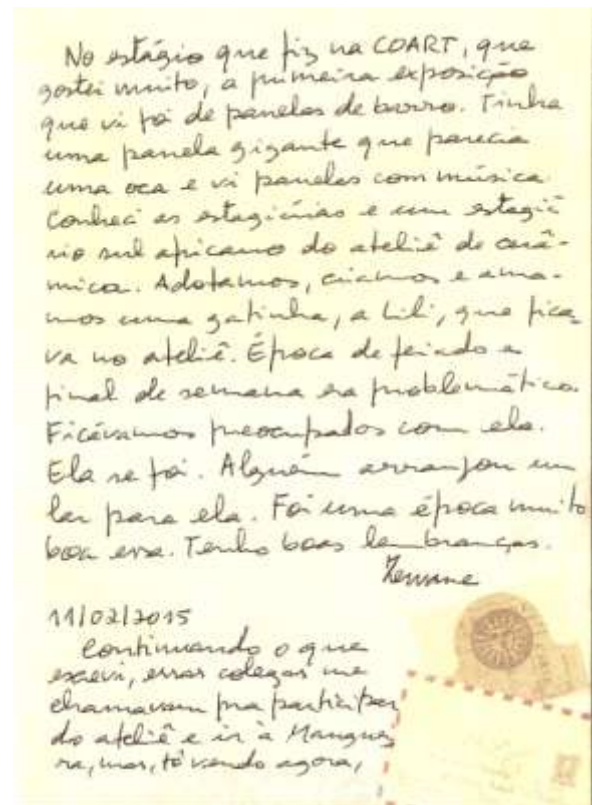 No estágio que fiz na COART, que
gostei muito, a primeira exposição
que vi foi de panelas de barro. Tinha
uma panela gigante que parecia
uma oca e vi panelas com música.
Conheci as estagiárias e um estagiá
rio sul africano do ateliê de cerâ-
mica. Adotamos, criamos e ama-
mos uma gatinha, a Lili, que fica-
va no ateliê. Época de feriado e
final de semana era problemático.
Ficávamos preocupados com ela.
Ela se foi. Alguém arranjou um
lar para ela. Foi uma época muito
boa essa. Tenho boas lembranças.
11/02/2015
Continuando o que
escrevi, essas colegas me
chamavam pra participar
do ateliê e ir à Manguei
ra, mas, tô vendo agora,